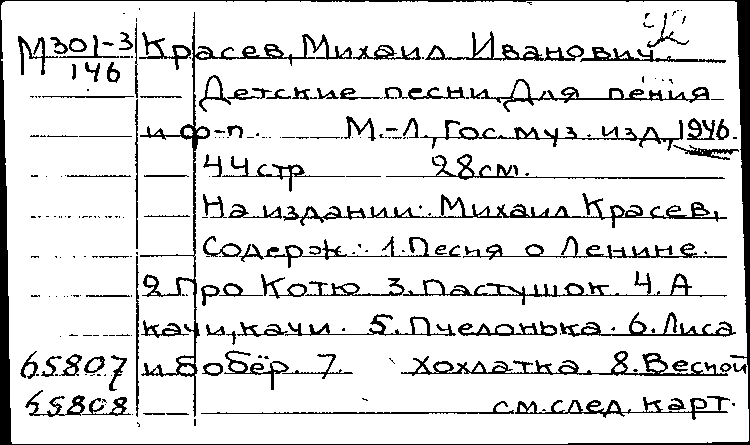 М301-3 Красев, Михаил Иванович.
146
Детские песни. Для пения
и ф-п. М.-Л., Гос. муз. изд, 1946.
44 стр 28 см.
На издании: Михаил Красев,
Содерж.: 1. Песня о Ленине.
2. Про Котю 3. Пастушок. 4. А
качи, качи. 5. Пчелонька. 6. Лиса
65807 и бобёр. 7. Хохлатка. 8. Весной
65808 см. след. карт.